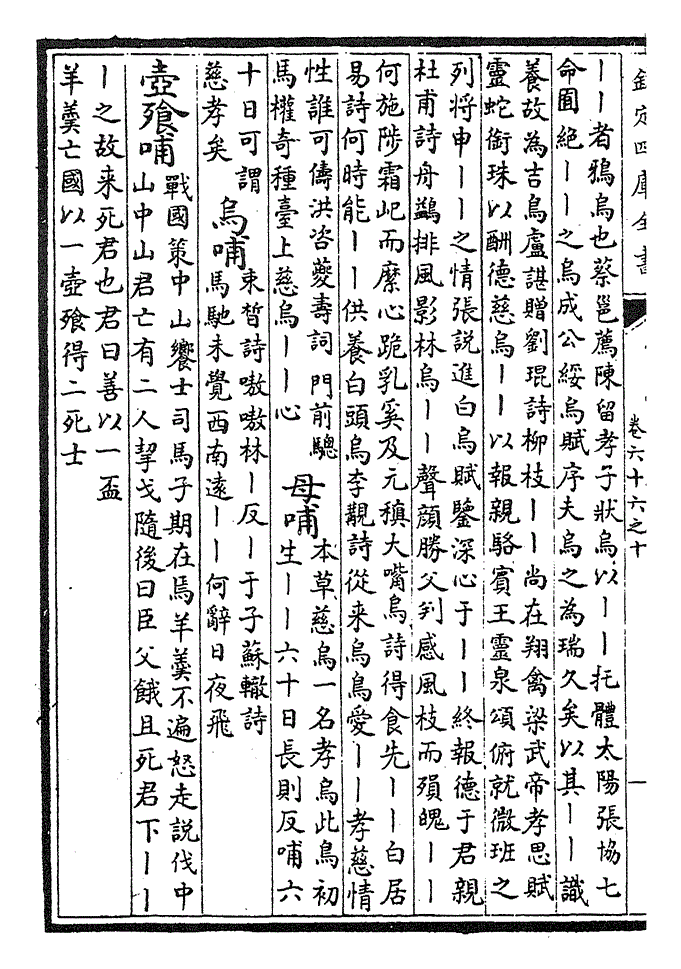 欽定四庫全書
卷六十六之十
丨丨者鴉烏也蔡邕薦陳留孝子狀烏以丨丨托體太陽張協七
命圄絶丨丨之烏成公綏烏賦序夫烏之為瑞久矣以其丨丨識
養故為吉鳥盧諶贈劉琨詩柳枝丨丨尚在翔禽梁武帝孝思賦
靈蛇銜珠以酬德慈烏丨丨以報親駱賓王靈泉頌俯就微班之
列將申丨丨之情張說進白烏賦鑒深心于丨丨終報德于君親
杜甫詩舟鷁排風影林烏丨丨聲顔勝父判感風枝而殞魄丨丨
何施陟霜屺而縻心跪乳奚及元稹大嘴烏詩得食先丨丨白居
易詩何時能丨丨供養白頭烏李覯詩從来烏鳥愛丨丨孝慈情
性誰可儔洪咨夔壽詞門前驄
馬權奇種臺上慈烏丨丨心
母哺
本草慈烏一名孝烏此鳥初
生丨丨六十日長則反哺六
十日可謂
慈孝矣
烏哺
束皙詩嗷嗷林丨反丨于子蘇轍詩
馬馳未覺西南遠丨丨何辭日夜飛
壺飱哺
戰國策中山饗士司馬子期在焉羊羮不遍怒走説伐中
山中山君亡有二人挈戈隨後曰臣父餓且死君下丨丨
丨之故来死君也君曰善以一盃
羊羮亡國以一壺飱得二死士